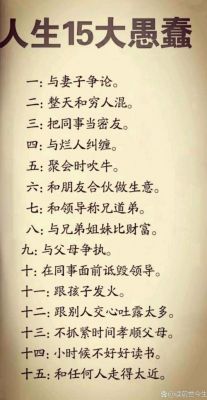 人生15大愚蠢
一：与妻子争论。
二：整天和穷人混。
三：把同事当密友。
四：与烂人纠缠。
五：聚会时吹牛。
六：和朋友合伙做生意。
七：和领导称兄道弟。
八：与兄弟姐妹比财富。
九：与父母争执。
十：在同事面前诋毁领导。
十一：跟孩子发火。
十二：跟别人交心吐露太多。
十三：不抓紧时间孝顺父母。
十四：小时候不好好读书。
十五：和任何人走得太近。